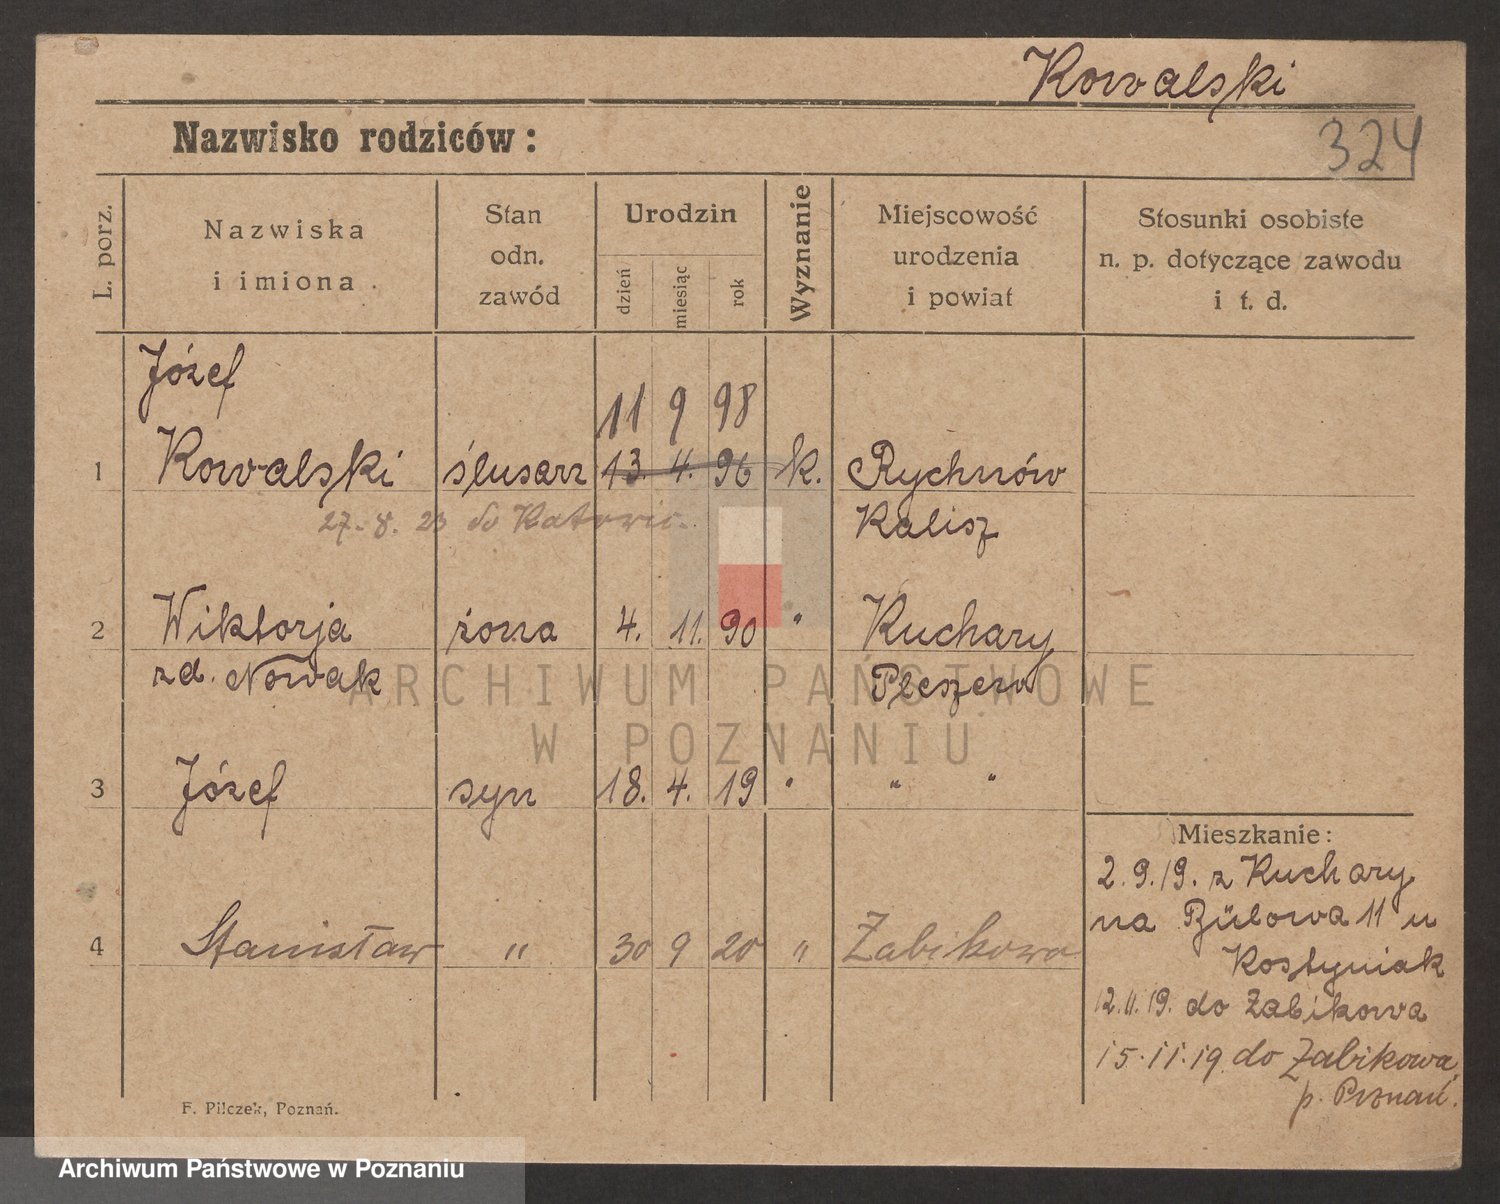 Kowalski
Nazwisko rodziców:
324
L. porz.
Nazwiska i imiona
Stan odn. zawód
Urodzin
dzień
miesiąc
rok
Wyznanie
Miejscowość urodzenia i powiat
Stosunki osobiste n. p. dotyczące zawodu i t. d.
Józef
11 9 98
1 Kowalski ślusarz 13. 4. 96 k. Rychnów
27.-8. 23 do Katowic. Kalisz
2 Wiktorja żona 4. 11. 90 " Kuchary
zd. Nowak Pleszew
3 Józef syn 18. 4. 19 " " "
Mieszkanie:
2.9.19. z Kuchary
na Bülowa 11 u
4 Stanisław " 30 9 20 " Żabikowo
Kostyniak
12.11.19. do Żabikowa
15.11.19 do Żabikowa,
p. Poznań.
F. Pilczek, Poznań.
ARCHIWUM PAŃSTWOWE
W POZNANIU
Archiwum Państwowe w Poznaniu